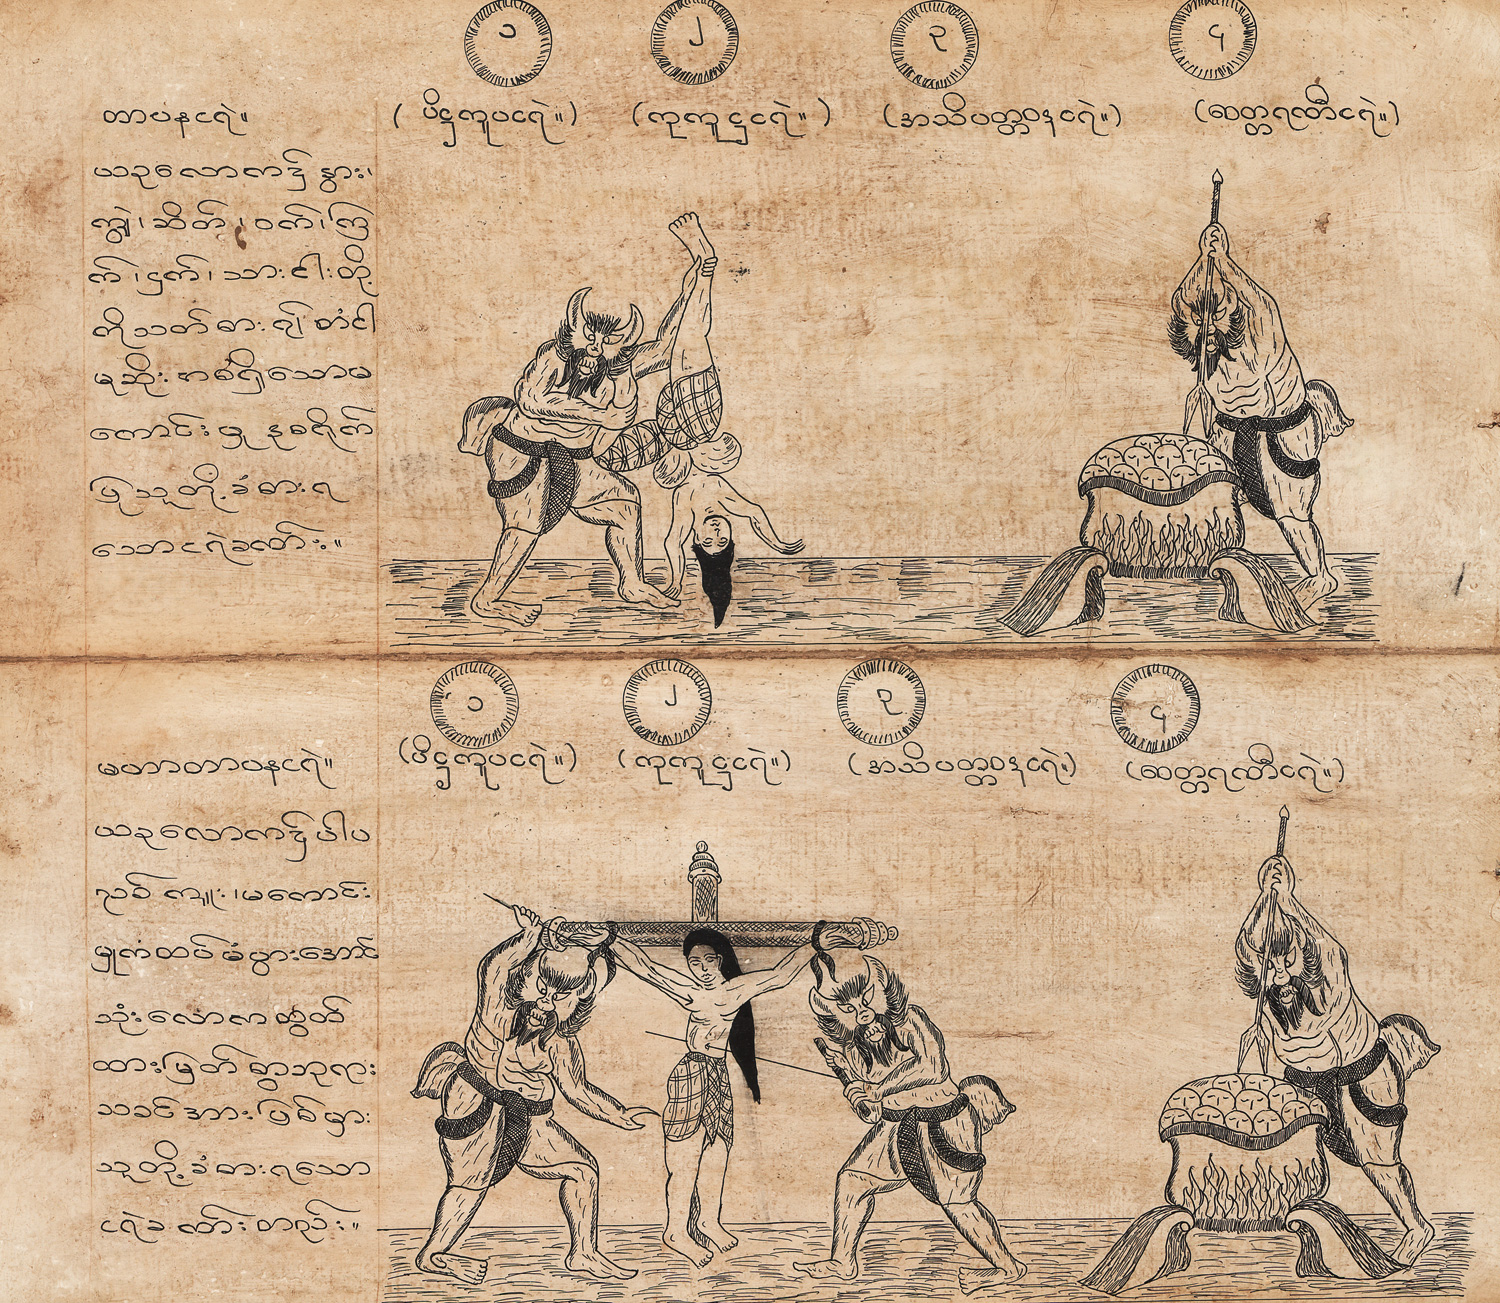 ၁ ၂ ၃ ၄
တာပနငရဲ။ (ပိဋ္ဌကူပငရဲ။) (ကုကူဋ္ဌငရဲ။) (အသိပတ္တဝနငရဲ။) (ဝေတ္တရဏီငရဲ။)
ယခုလောက၌ နွား၊
ကျွဲ၊ ဆိတ်၊ ဝက်၊ ကြ
က်၊ ငှက်၊ သား ငါး တို့
ကိုသတ် စား ၍ တံငါ
မုဆိုး သောမ
ကောင်းမှု ဒုစရိုက်
ပြုသူတို့ ခံ စား ရ
သောငရဲခဏ်း။
၁ ၂ ၃ ၄
မဟာတာပနငရဲ။ (ပိဋ္ဌကူပငရဲ။) (ကုကူဋ္ဌငရဲ။) (အသိပတ္တဝနငရဲ။) (ဝေတ္တရဏီငရဲ။)
ယခုလောက၌ ပါပ
ညစ် ကျူး ၊မကောင်း
မှုကံထပ်မံပွားအောင်
သုံးလောကထွတ်
ထားမြတ်စွာဘုရား
သခင်အား ပြစ်မှား
သူတို့ ခံ စား ရသော
ငရဲခဏ်းတည်း။